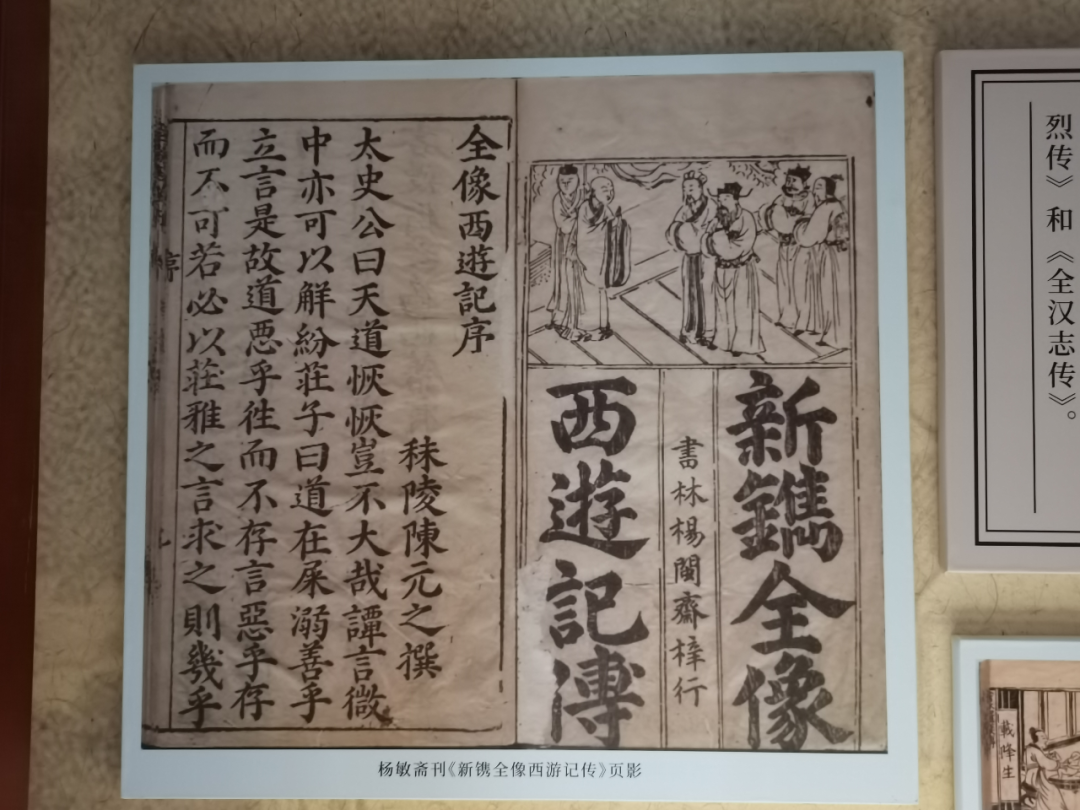 新鐫全像
書林楊閩齋梓行
西遊記傳
全像西遊記序
秣陵陳元之撰
太史公曰天道恢恢豈不大哉譚言微
中亦可以解紛莊子曰道在屎溺善乎
立言是故道惡乎徃而不存言惡乎存
而不可若必以莊雅之言求之則幾乎
序
杨敏斋刊《新镌全像西游记传》页影
烈传》和《全汉志传》。
降生